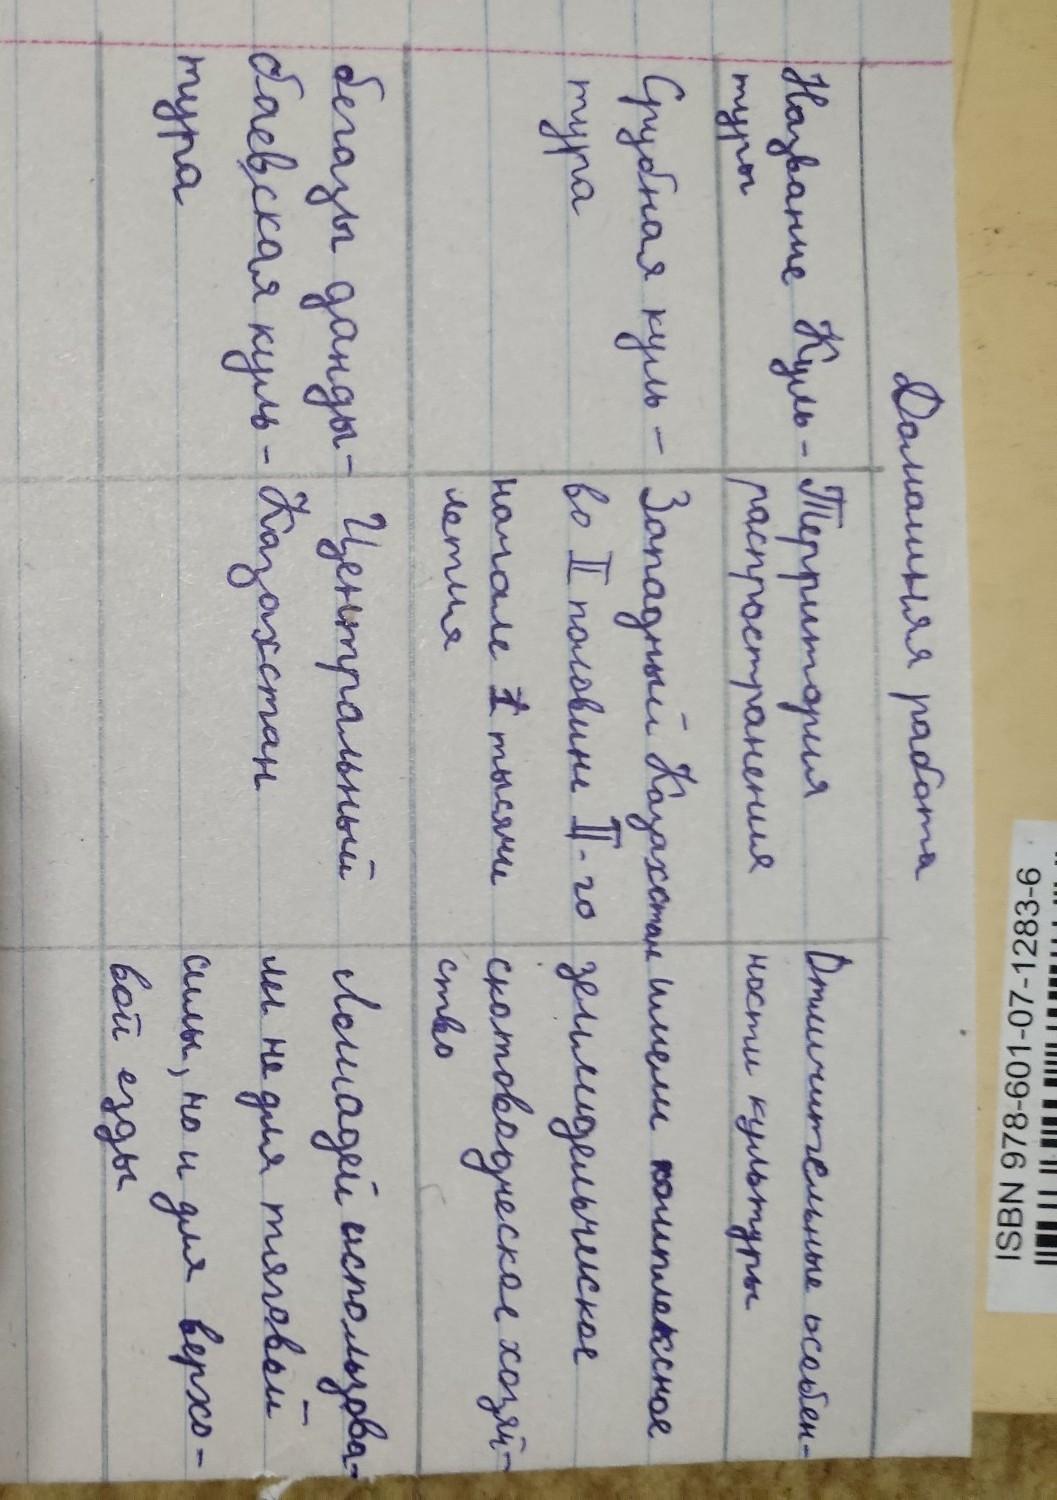 Домашняя работа
Название Куль-
туры
Территория
распространения
Отличительные особен-
ности культуры
Срубная куль-
тура
Западный Казахстан
во II половине II-го
начале 1 тысячи
летия
имеет комплексное
земледельческое
скотоводческое хозяй-
ство
бегазы данды-
баевская куль-
тура
Центральный
Казахстан
Лошадей использова-
ли не для тяговой
силы, но и для верхо-
вой езды
ISBN 978-601-07-1283-6